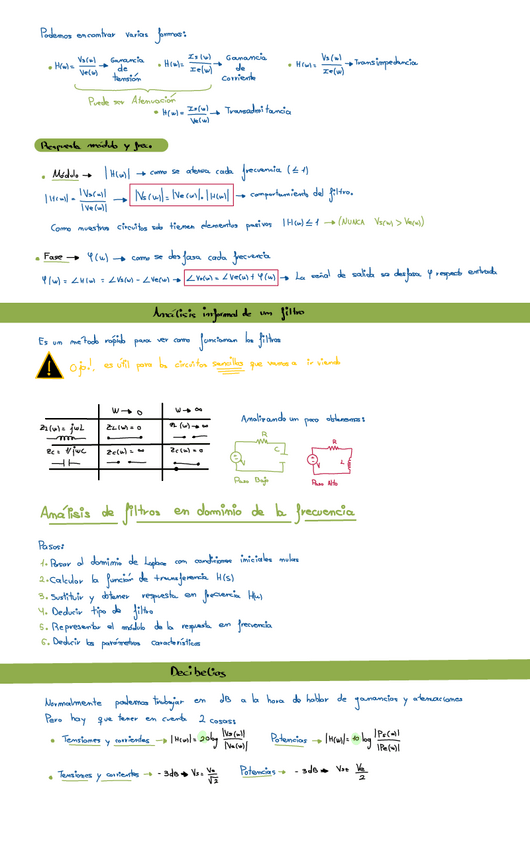 Podemos encontrar varias formas:
• H(w) = Vs(w)/Ve(w) → Ganancia de tensión • H(w) = Is(w)/Ie(w) → Ganancia de Corriente • H(w) = Vs(w)/Ie(w) → Transimpedancia
Puede ser Atenuación
• H(w) = Is(w)/Ve(w) → Transadmitancia
Respuesta módulo y fase.
• Módulo → |H(w)| → como se atenúa cada frecuencia (≤ 1)
|H(w)| = |Vs(w)|/|Ve(w)| → |Vs(w)| = |Ve(w)|·|H(w)| → comportamiento del filtro.
Como nuestros circuitos solo tienen elementos pasivos |H(w)| ≤ 1 → (NUNCA Vs(w) > Ve(w))
• Fase → φ(w) → como se desfasa cada frecuencia
φ(w) = ∠H(w) = ∠Vs(w) - ∠Ve(w) → ∠Vs(w) = ∠Ve(w) + φ(w) → La señal de salida se desfasa φ respecto entrada
Análisis informal de un filtro
Es un método rápido para ver como funcionan los filtros
Ojo!, es útil para los circuitos sencillos que vamos a ir viendo
w → 0 w → ∞
ZL(w) = jwL ZL(w) = 0 ZL(w) → ∞
Zc = 1/jwC Zc(w) = ∞ Zc(w) = 0
Analizando un poco obtenemos:
R C V
Paso Bajo
R L V
Paso Alto
Análisis de filtros en dominio de la frecuencia
Pasos:
1. Pasar al dominio de Laplace con condiciones iniciales nulas
2. Calcular la función de transferencia H(s)
3. Sustituir y obtener respuesta en frecuencia H(w)
4. Deducir tipo de filtro
5. Representar el módulo de la respuesta en frecuencia
6. Deducir los parámetros característicos
Decibelios
Normalmente podemos trabajar en dB a la hora de hablar de ganancias y atenuaciones
Pero hay que tener en cuenta 2 cosas:
• Tensiones y corrientes → |H(w)| = 20log |Vs(w)|/|Ve(w)| Potencias → |H(w)| = 10 log |Ps(w)|/|Pe(w)|
• Tensiones y corrientes → -3dB → Vs = Ve/√2 Potencias → -3dB → Vs = Ve/2